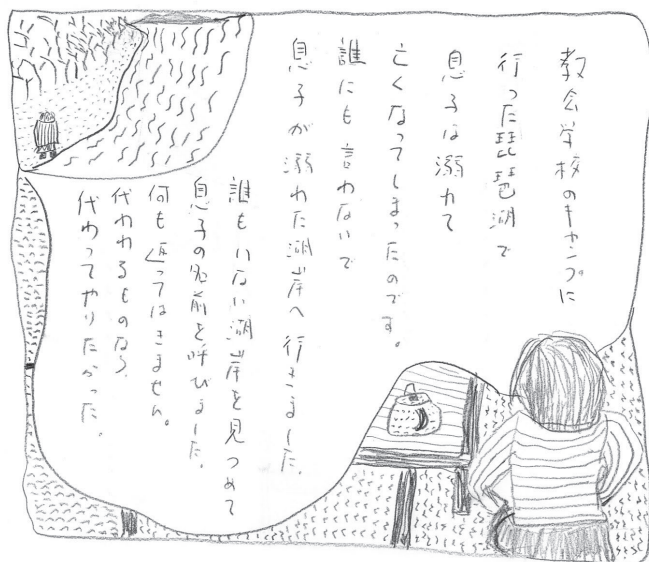 教会学校のキャンプに
行った琵琶湖で
息子は溺れて
亡くなってしまったのです。
誰にも言わないで
息子が溺れた湖岸へ行きました。
誰もいない湖岸を見つめて
息子の名前を呼びました。
何も返ってはきません。
代われるものなら、
代わってやりたかった。